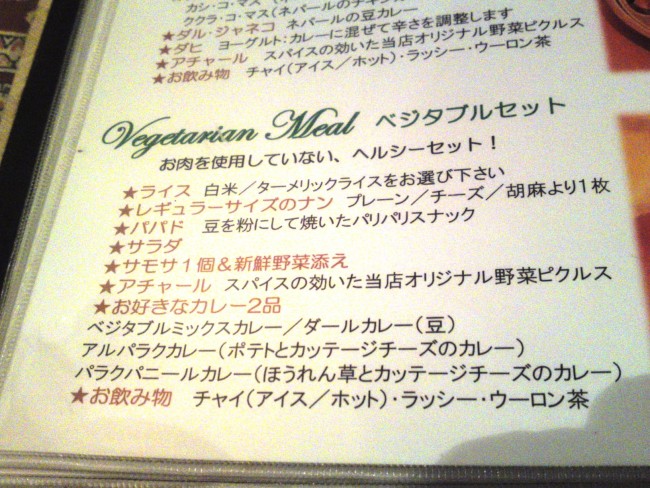 カシ・コ・マス
ククラ・コ・マス(ネパールのチキンカ
★ダル・ジャネコ ネパールの豆カレー
★ダヒ ヨーグルト:カレーに混ぜて辛さを調整します
★アチャール スパイスの効いた当店オリジナル野菜ピクルス
★お飲み物 チャイ(アイス/ホット)・ラッシー・ウーロン茶
Vegetarian Meal ベジタブルセット
お肉を使用していない、ヘルシーセット!
★ライス 白米/ターメリックライスをお選び下さい
★レギュラーサイズのナン プレーン/チーズ/胡麻より1枚
★パパド 豆を粉にして焼いたパリパリスナック
★サラダ
★サモサ1個&新鮮野菜添え
★アチャール スパイスの効いた当店オリジナル野菜ピクルス
★お好きなカレー2品
ベジタブルミックスカレー/ダールカレー(豆)
アルパラクカレー(ポテトとカッテージチーズのカレー)
パラクパニールカレー(ほうれん草とカッテージチーズのカレー)
★お飲み物 チャイ(アイス/ホット)・ラッシー・ウーロン茶